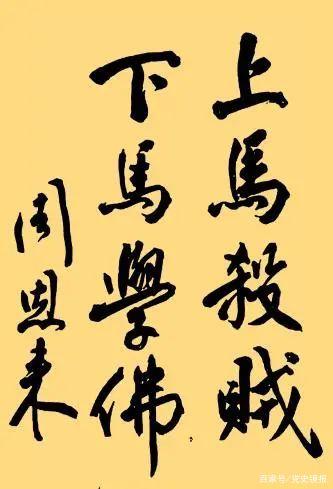 上馬殺賊
下馬學佛
周恩来
百家号/党史镜报